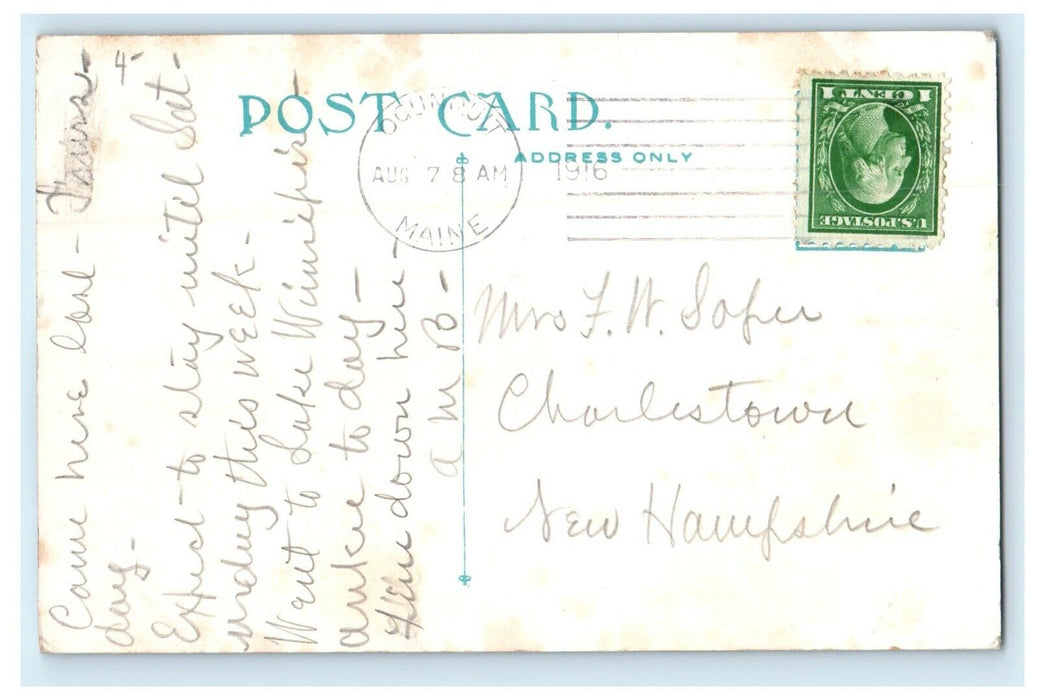 POST CARD.
ADDRESS ONLY
OGUNQUIT
AUG 7 8 AM
1916
MAINE
U.S. POSTAGE
1 CENT 1
Mrs F. W. Soper
Charlestown
New Hampshire
4-
Came here
day-
Expect to stay until Sat-
urday this week-
Went to Lake Winnipis-
aukee to day-
down
A M B-